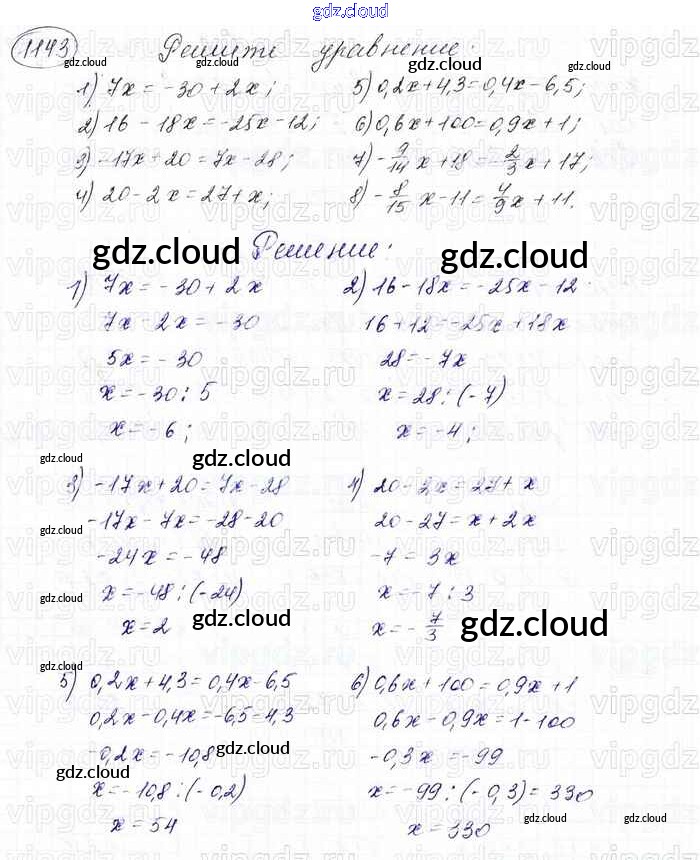 gdz.cloud
1143 Решити уравнение:
1) 7x = -30 + 2x; 5) 0,2x + 4,3 = 0,4x - 6,5;
2) 16 - 18x = -25x - 12; 6) 0,6x + 100 = 0,9x + 1;
3) -17x + 20 = 7x - 28; 7) -9/14 x + 18 = -2/3 x + 17;
4) 20 - 2x = 27 + x; 8) -8/15 x - 11 = 4/9 x + 11.
gdz.cloud Решение: gdz.cloud
1) 7x = -30 + 2x 2) 16 - 18x = -25x - 12
7x - 2x = -30 16 + 12 = -25x + 18x
5x = -30 28 = -7x
x = -30 : 5 x = 28 : (-7)
x = -6; x = -4;
gdz.cloud
3) -17x + 20 = 7x - 28 4) 20 - 2x = 27 + x
-17x - 7x = -28 - 20 20 - 27 = x + 2x
-24x = -48 -7 = 3x
x = -48 : (-24) x = -7 : 3
x = 2 x = -7/3
gdz.cloud gdz.cloud
5) 0,2x + 4,3 = 0,4x - 6,5 6) 0,6x + 100 = 0,9x + 1
0,2x - 0,4x = -6,5 = 4,3 0,6x - 0,9x = 1 - 100
-0,2x = -10,8 -0,3x = -99
x = -10,8 : (-0,2) x = -99 : (-0,3) = 330
x = 54 x = 330
gdz.cloud
vipgdz.ru